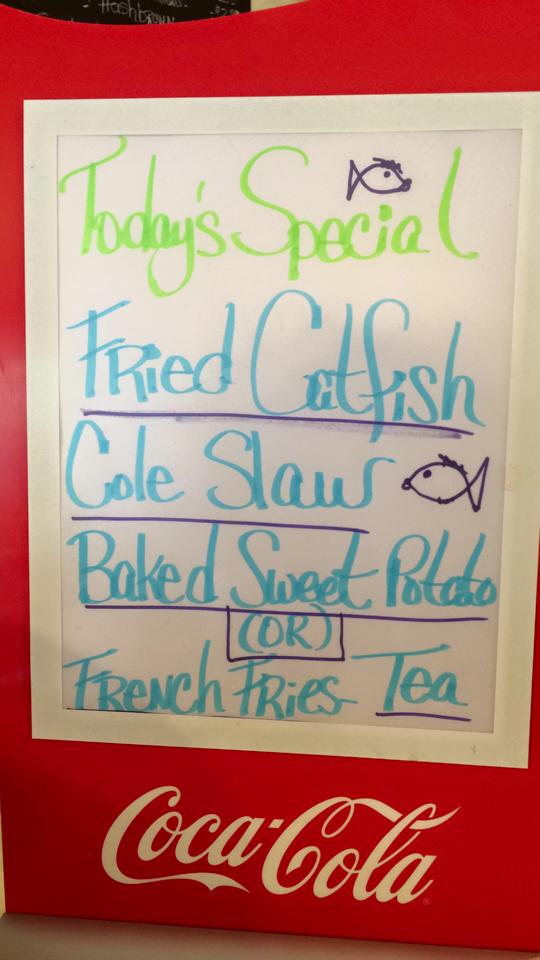 Hashbrown
Today's Special
Fried Catfish
Cole Slaw
Baked Sweet Potato
(OR)
FRENCH FRies Tea
Coca-Cola